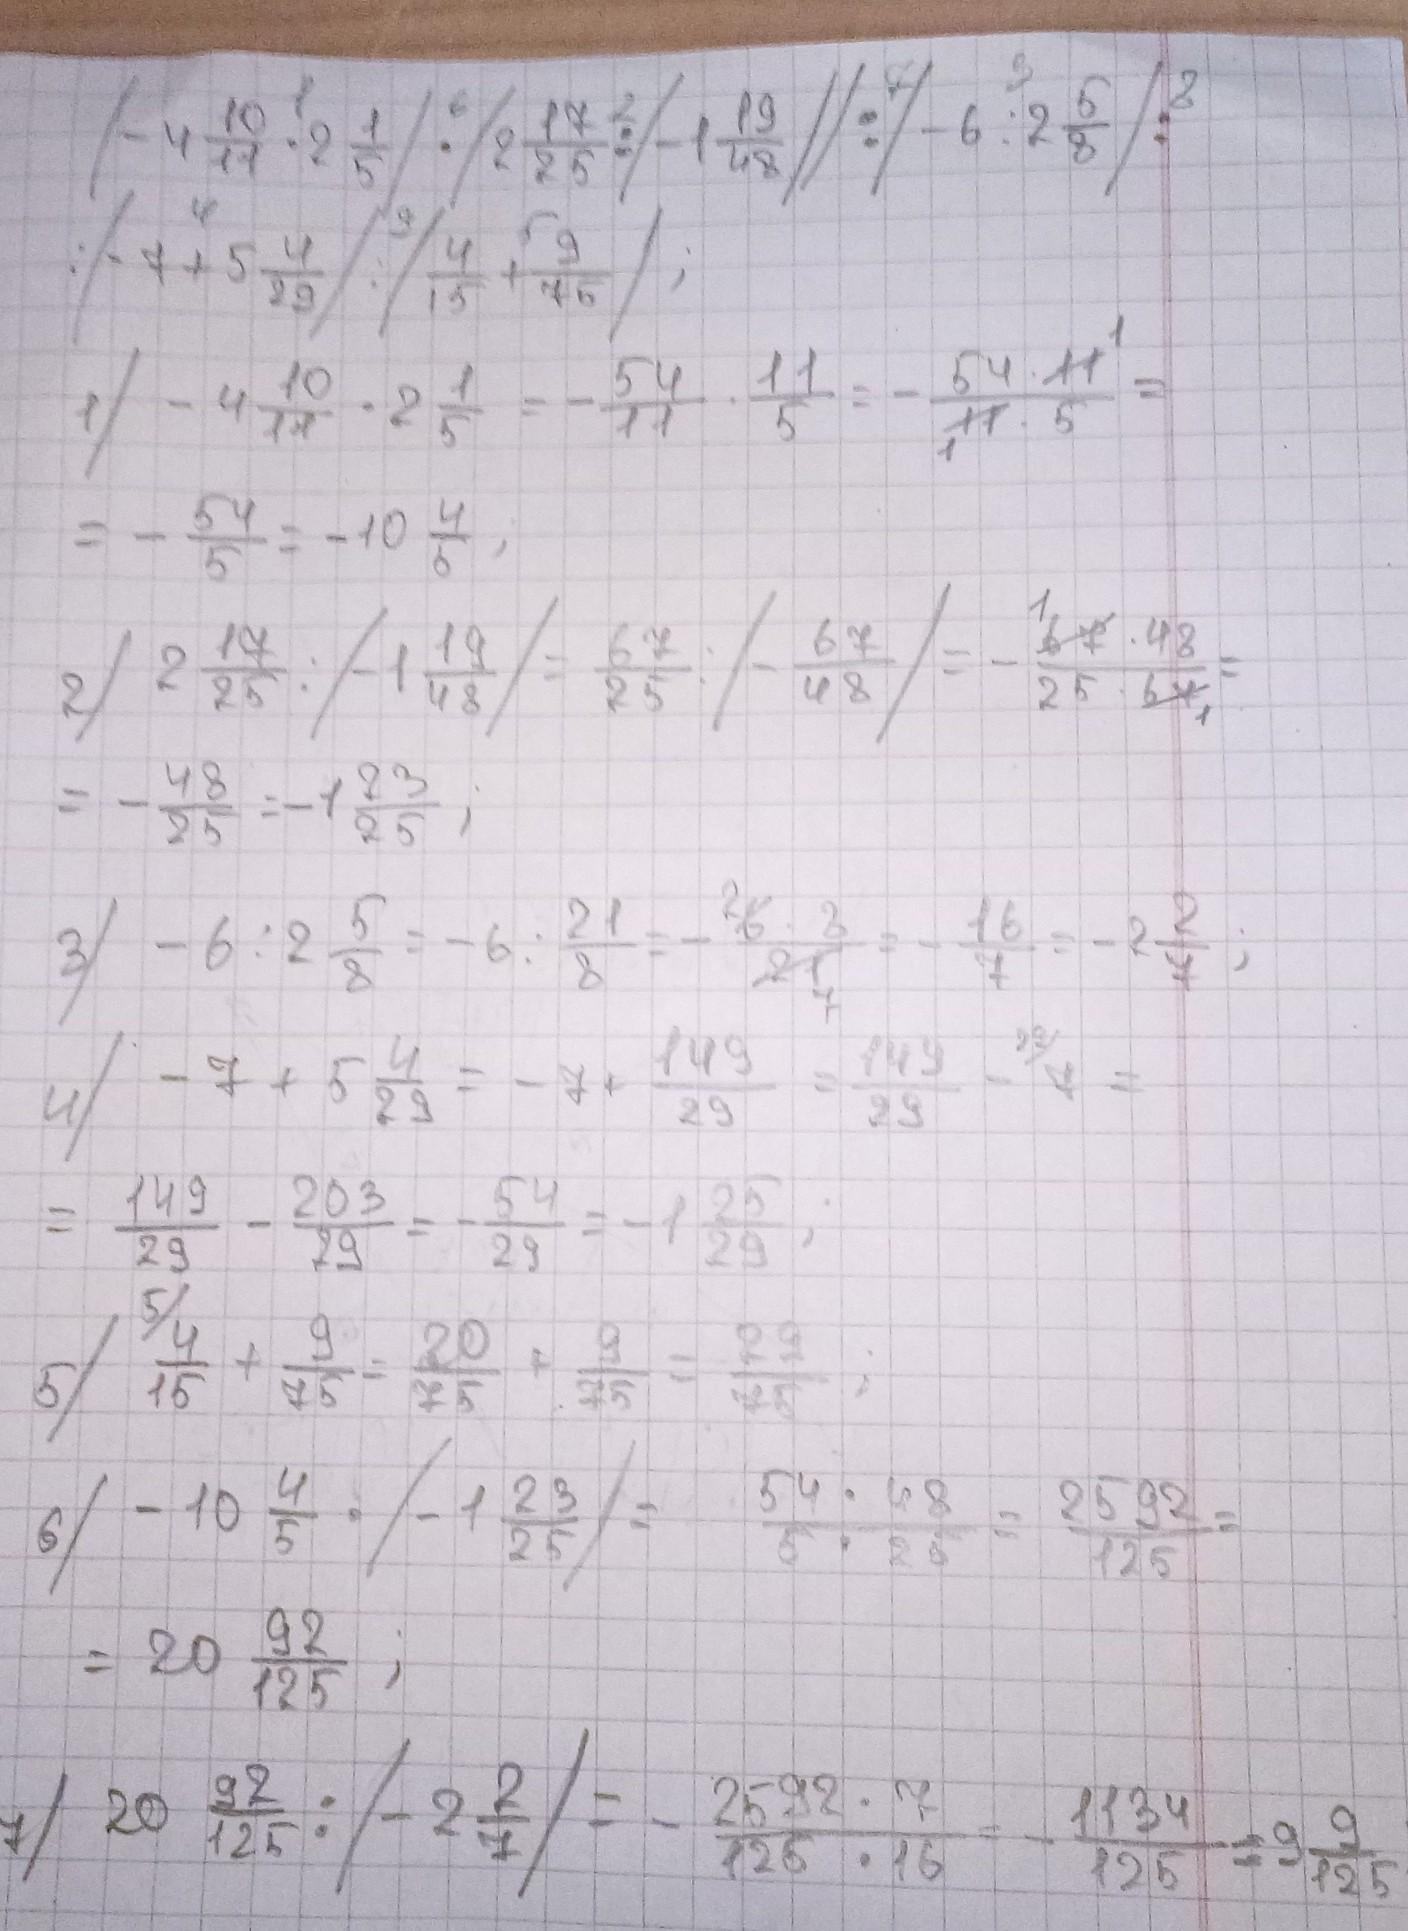 /-4 10/11 ·¹ 2 1/5/ ·⁶ /2 17/25 :² /-1 19/48// :⁷ /-6 :³ 2 5/8/ :⁸
:/-7 +⁴ 5 4/29/ :⁹ /4/15 +⁵ 9/75/ ;
1/ -4 10/11 · 2 1/5 = - 54/11 · 11/5 = - 54·11¹/11₁·5 =
= - 54/5 = -10 4/5 ;
2/ 2 17/25 : /-1 19/48/ = 67/25 : /- 67/48/ = - ¹67·48/25·67₁ =
= - 48/25 = -1 23/25 ;
3/ -6 : 2 5/8 = -6 : 21/8 = - ²6·8/21₇ = - 16/7 = -2 2/7 ;
4/ -7 + 5 4/29 = -7 + 149/29 = 149/29 - ²⁹/7 =
= 149/29 - 203/29 = - 54/29 = -1 25/29 ;
5/ ⁵/4/15 + 9/75 = 20/75 + 9/75 = 29/75 ;
6/ -10 4/5 · /-1 23/25/ = 54·48/5·25 = 2592/125 =
= 20 92/125 ;
7/ 20 92/125 : /-2 2/7/ = - 2592·7/125·16 = - 1134/125 = 9 9/125